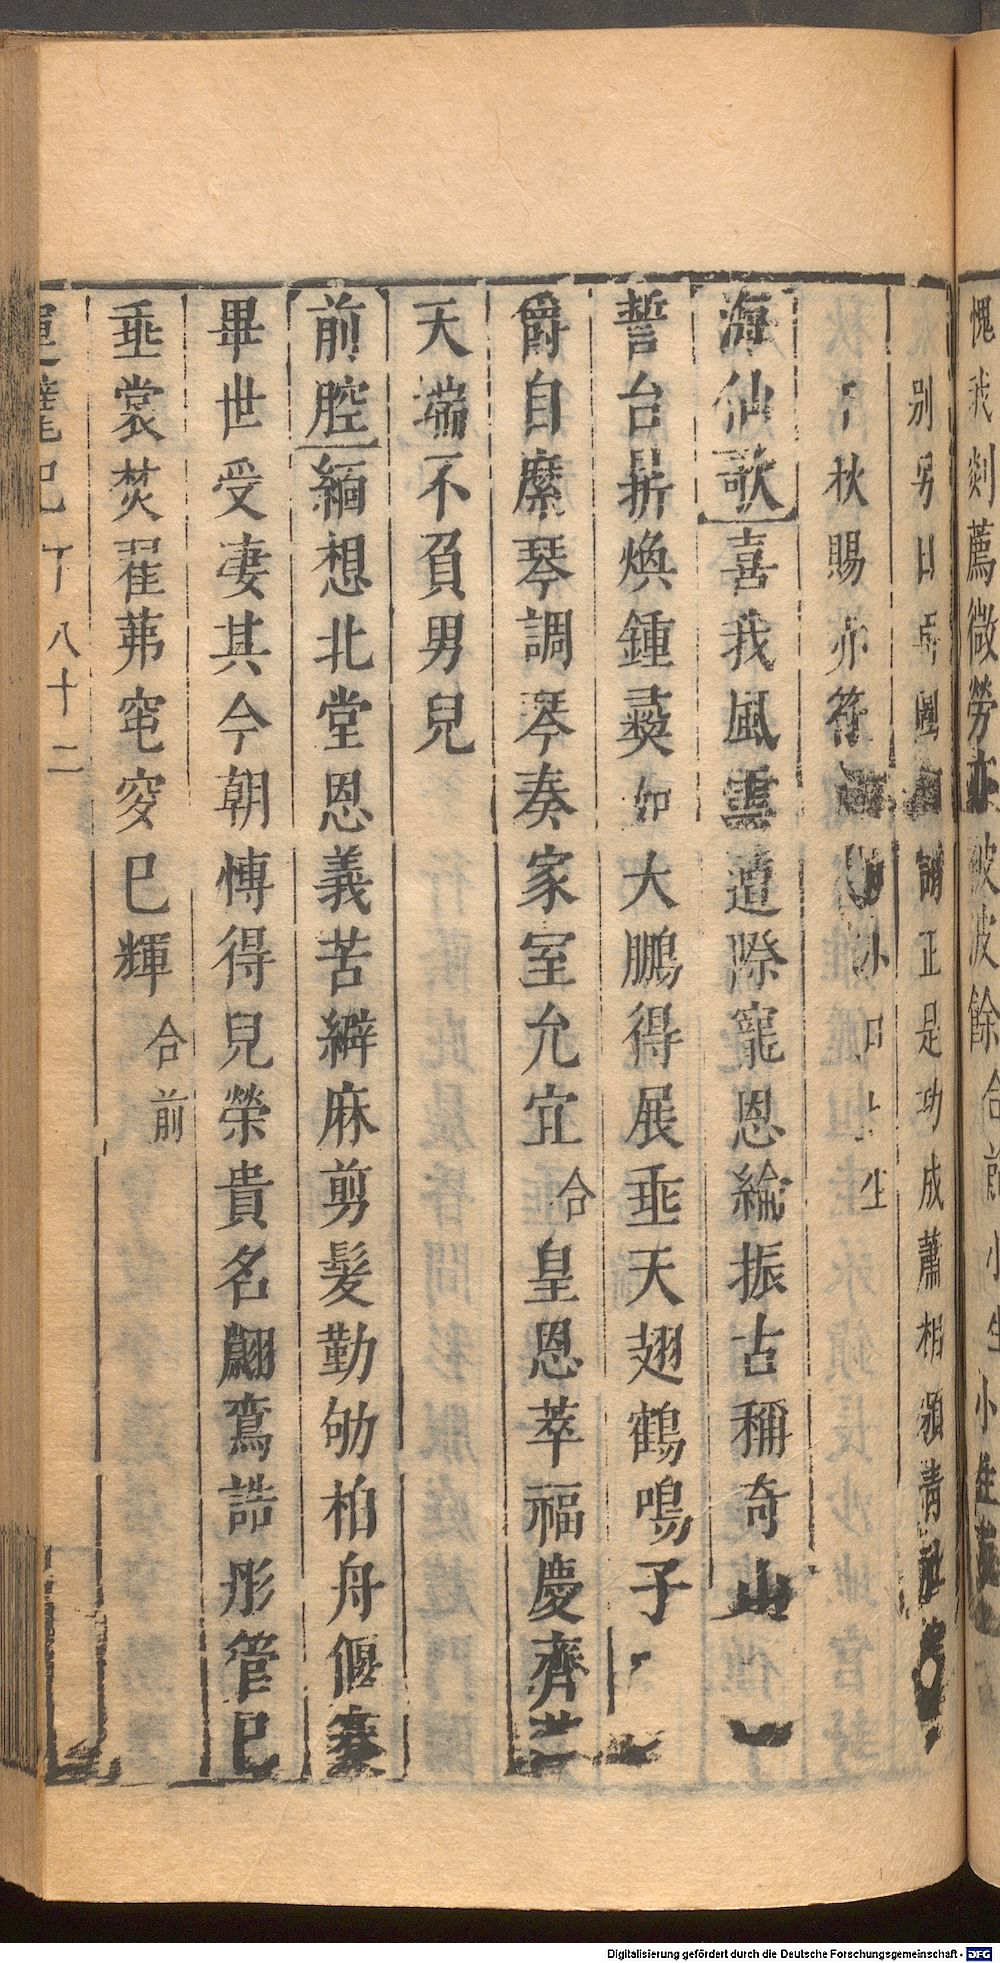 愧我剡薦微勞亦被波餘合前小生小生
別另日 正是功成蕭相 清
秋賜赤符 小 生
海仙歌喜我風雲遭際寵恩綸振古稱奇山
誓台鼎煥鍾彛如大鵬得展垂天翅鶴鳴子
爵自縻琴調琴奏家室允宜合皇恩萃福慶齊
天端不負男兒
前腔緬想北堂恩義苦繲麻剪髮勤劬柏舟偃蹇
畢世受凄其今朝慱得兒榮貴名翽鸞誥彤管已
垂裳焚翟茀窀穸已輝合前
記 丁 八十二
Digitalisierung gefördert durch die Deutsche Forschungsgemeinschaft - DFG